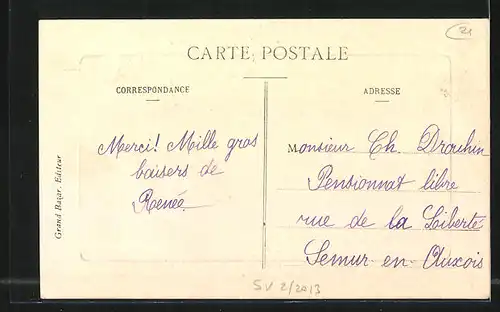 21
CARTE POSTALE
CORRESPONDANCE
Merci! Mille gros
baisers de
Renée
ADRESSE
Monsieur Ch. Drouhin
Pensionnat libre
rue de la Liberté
Semur-en-Auxois
Grand Bazar, Editeur
SV 2/2013